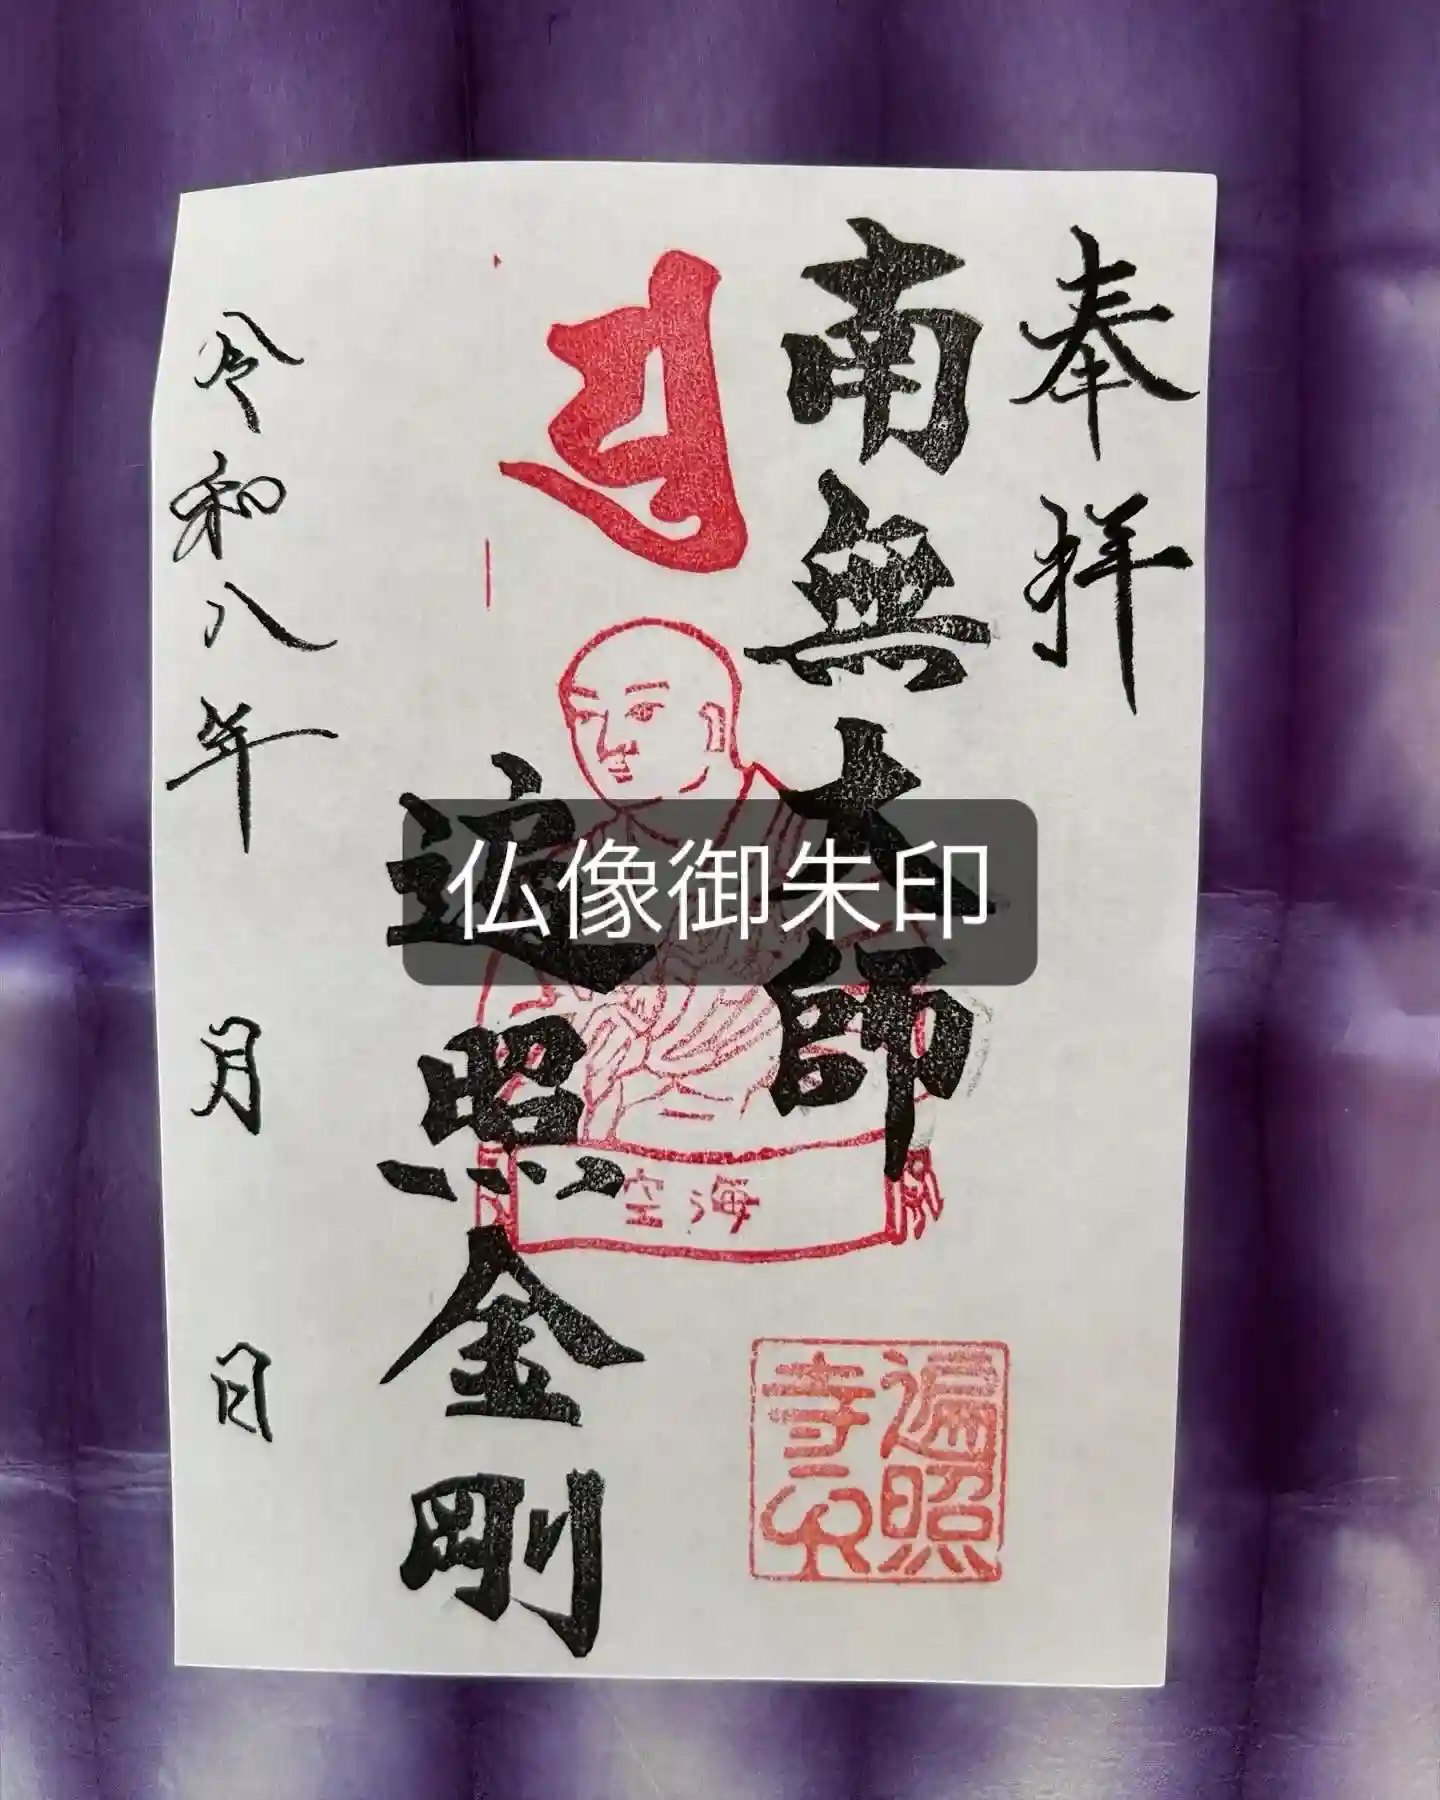 奉拝
南無大師
遍照金剛
令和八年 月 日
空海
遍照
寺
仏像御朱印